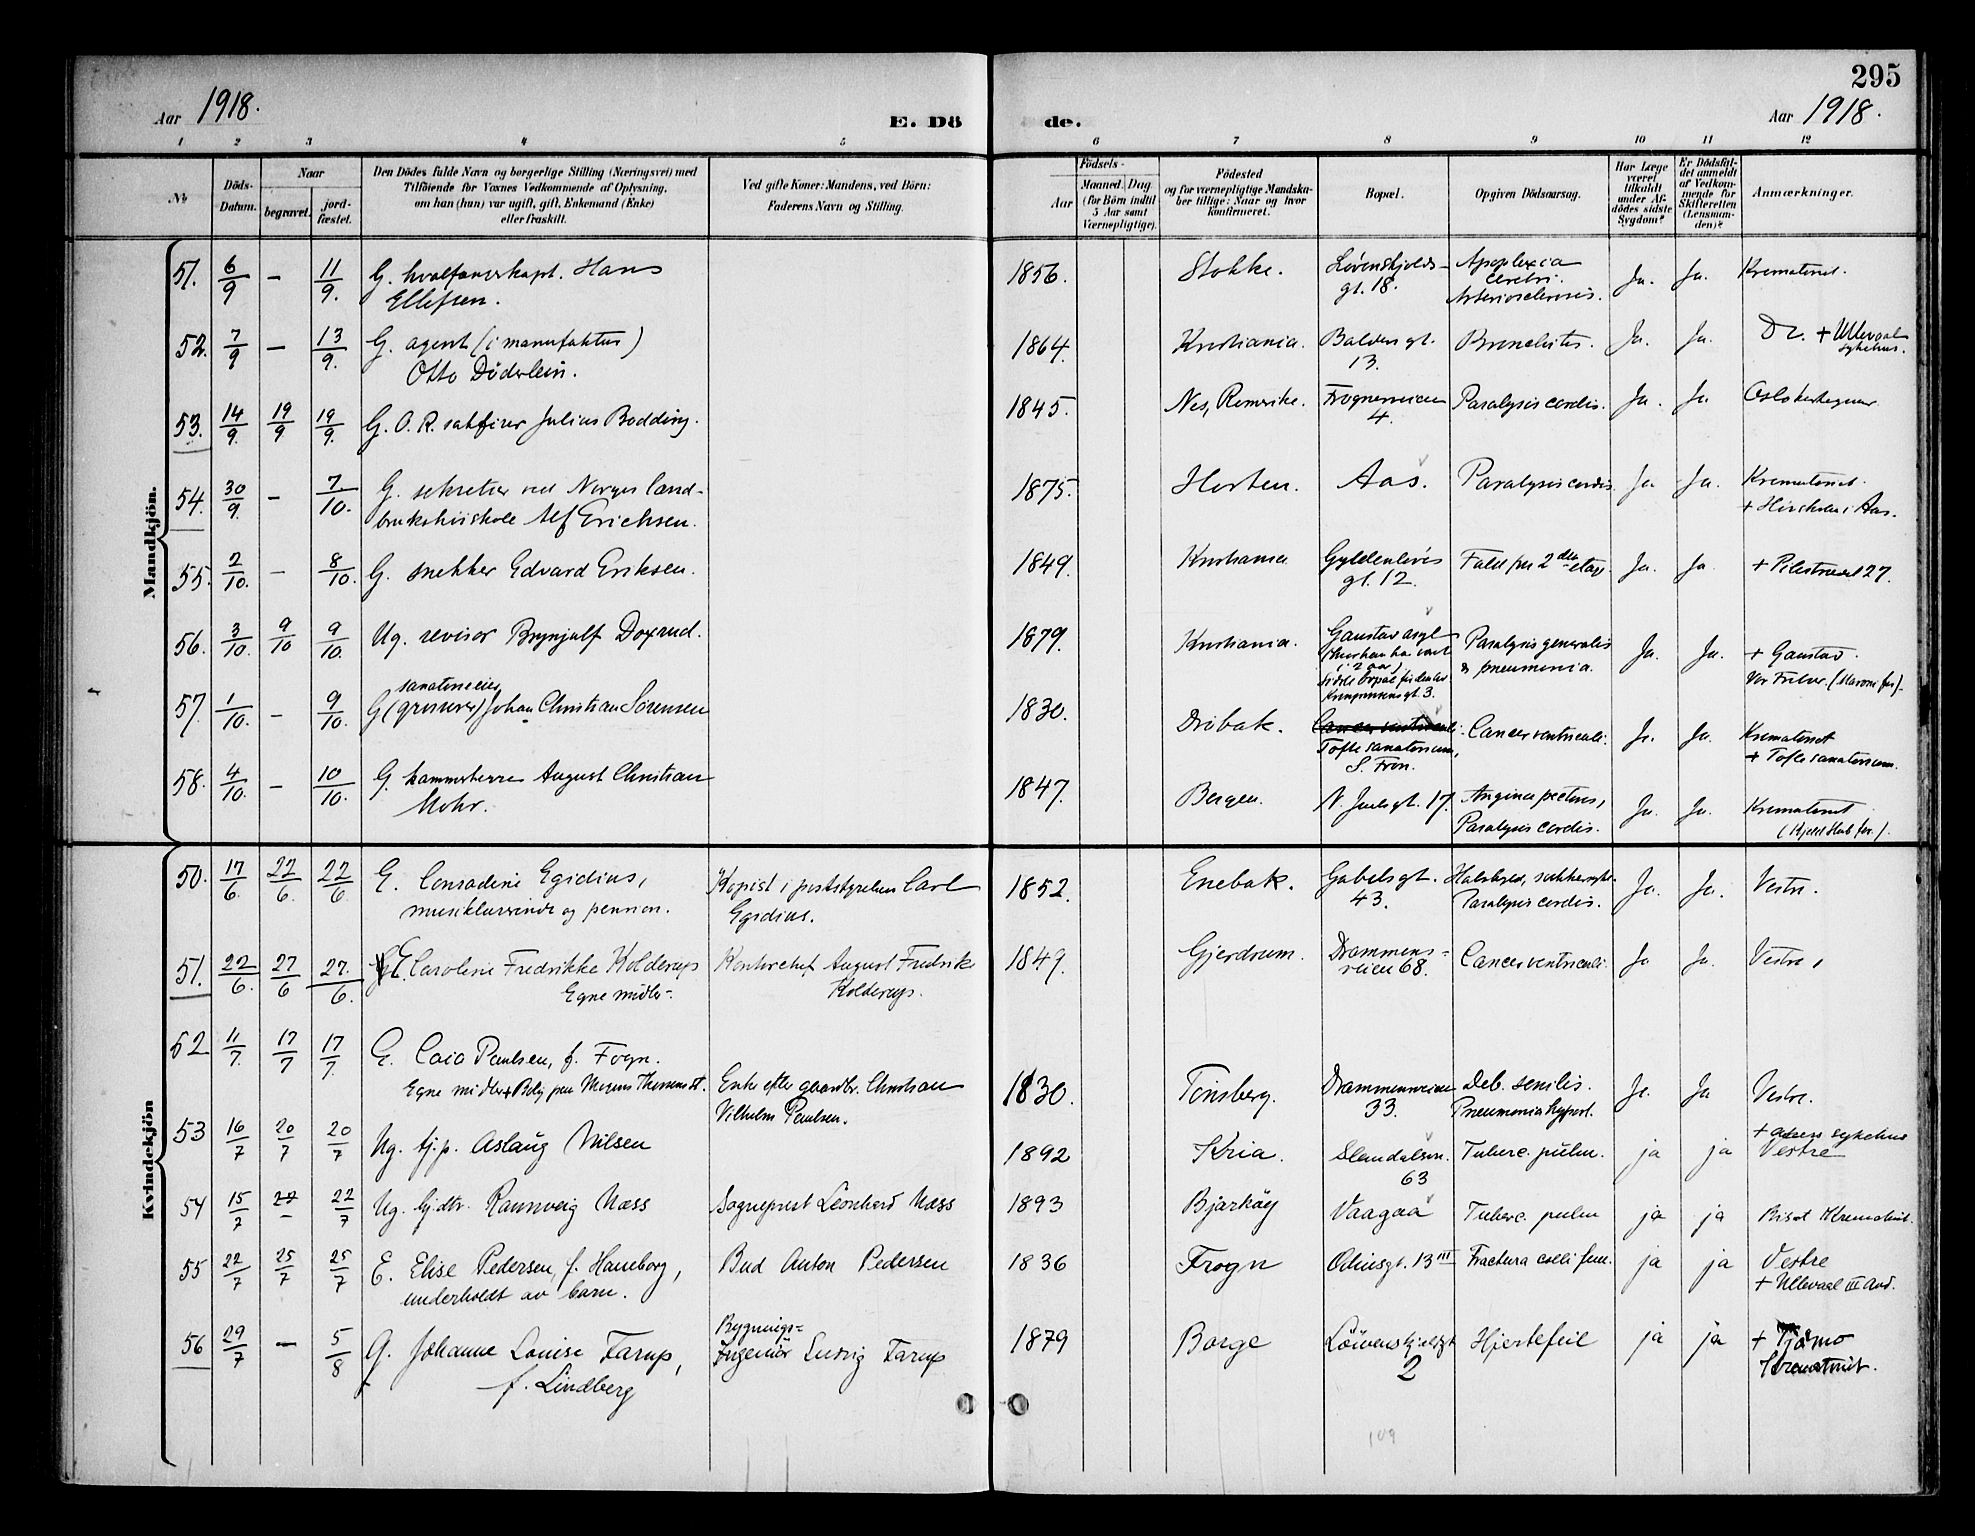 295
Aar 1918.
E. Döde.
Aar 1918.
1 2 3 4 5 6 7 8 9 10 11 12
No
Döds-Datum.
Naar
begravet.
jord-fæstet.
Den Dödes fulde Navn og borgerlige Stilling (Næringsvei) med
Tilföiende for Voxnes Vedkommende af Oplysning,
om han (hun) var ugift, gift, Enkemand (Enke)
eller fraskilt.
Ved gifte Koner: Mandens, ved Börn:
Faderens Navn og Stilling.
Födsels-
Aar
Maaned. Dag
(for Börn indtil
5 Aar samt
Værnepligtige).
Födested
og for værnepligtige Mandska-
ber tillige: Naar og hvor
konfirmeret.
Bopæl.
Opgiven Dödsaarsag.
Har Læge
været
tilkaldt
under Af-
dödes sidste
Sygdom?
Er Dödsfal-
det anmeldt
af Vedkom-
mende for
Skifteretten
(Lensman-
den)?
Anmærkninger.
Mandkjön.
51. 6/9 – 11/9. G. hvalfangerkapt. Hans
Ellefsen.
1856. Stokke. Løvenskjolds-
gt. 18. Apoplexia
cerebri.
Arteriosclerosis. Ja. Ja. Krematoriet.
52. 7/9 – 13/9. G. agent (i manufaktur)
Otto Døderlein.
1864. Kristiania. Baldersgt.
13. Bronchitis. Ja. Ja. Do. + Ullevaal
sykehus.
53. 14/9. 19/9 19/9. G. O. R. sakfører Julius Bødding.
1845. Nes, Romerike. Frognerveien
4. Paralysis cordis. Ja. Ja Oslo kirkegaard
54. 30/9. – 7/10. G. sekretær ved Norges land-
brukshøiskole Alf Erichsen.
1875. Horten. Aas. Paralysis cordis. Ja Ja. Krematoriet.
+ Høiskolen i Aas.
55. 2/10. – 8/10. G. snekker Edvard Eriksen.
1849. Kristiania Gyldenløves
gt. 12. Fald fra 2den etage Ja. Ja. + Pilestrædet 27.
56. 3/10. 9/10 9/10. Ug. revisor Brynjulf Doxrud.
1879. Kristiania. Gaustad asyl
(hvor han har vært
i 2 aar)
sidste bopæl før den tid
Kronprinsensgt. 3. Paralysis generalis
& pneumonia. Ja. Ja. + Gaustad.
Vor Frelser.
57. 1/10. – 9/10. sanatorieeier
G (grosserer) Johan Christian Sørensen
1830. Drøbak. Cancer ventriculi.
Tofte sanatorium,
S. Fron. Cancer ventriculi. Ja. Ja. Krematoriet
+ Tofte sanatorium.
58. 4/10. – 10/10. G. kammerherre August Christian
Mohr.
1847. Bergen. N. Juels gt. 17. Angina pectoris,
Paralysis cordis. Ja. Ja. Krematoriet
Kvindekjön
50. 17/6. 22/6. 22/6 E. Conradine Egidius,
musiklærerinde og pension.
Kopist i poststyrelsen Carl
Egidius.
1852. Enebak. Gabelsgt.
43. Halsbyld, sukkersyke.
Paralysis cordis. Ja. Ja. Vestre.
51. 22/6. 27/6 27./6. E. Caroline Fredrikke Kolderup
Egne midler.
Kontorchef August Fredrik
Kolderup.
1849. Gjerdrum. Drammens-
veien 68. Cancer ventriculi. Ja Ja. Vestre,
52 11/7. 17/7 17/7. E. Caia Paulsen, f. Fogn.
Enke efter gaardbr. Christian
Vilhelm Paulsen.
1830. Tønsberg. Drammensveien
33. Deb. senilis.
Pneumonia hypost. Ja. Ja Vestre.
53 16/7 20/7 20/7 Ug. tj.p. Aslaug Nilsen
1892 Kria. 63 Tuberc. pulm. ja ja sykehus
Vestre
54 15/7 22 – 22/7 Ug. hj.dtr. Rannveig Næss
Sogneprest Leonhard Næss
1893 Bjarköy Vaagaa Tuberc. pulm ja ja Bisat Krematoriet.
55 22/7 25/7 25/7 E. Elise Pedersen, f. Haneborg,
underholdt av barn.
Bud Anton Pedersen
1836 Frogn Odinsgt. 13 III Fractura colli fem. ja ja Vestre
+ Ullevaal III Avd.
56 29/7 – 5/8 G. Johanne Louise Farup,
f. Lindberg
Bygnings-
Ingeniør Ludvig Farup
1879 Borge Löwenskjoldsgt
2 Hjertefeil ja ja + Tjømo
Krematoriet.
109